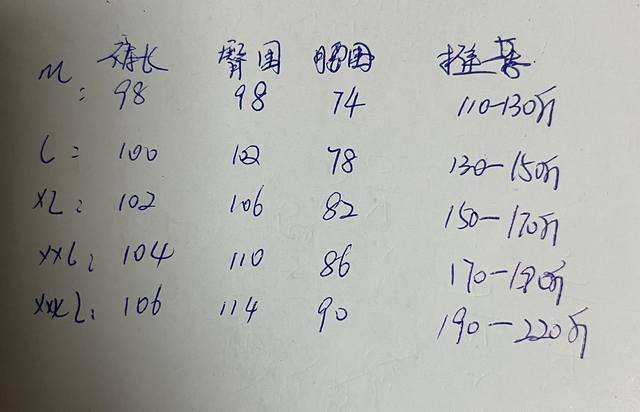 裤长 臀围 腰围 推荐
M: 98 98 74 110-130斤
L: 100 102 78 130-150斤
XL: 102 106 82 150-170斤
XXL: 104 110 86 170-190斤
XXXL: 106 114 90 190-220斤